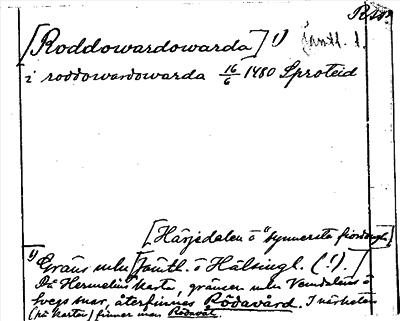 [Roddowardowarda] 1) Jämtl.
i roddowardowarda 16/6 1480 Sproteid
[Härjedalen ö
1) Gräns mln Jämtl. o Hälsingl. (!).
På Hermelins karta, gränsen mln Vemdalens o
Svegs snar, återfinnes Rödavård. I närheten
(på kartan) finner man Rödavål.